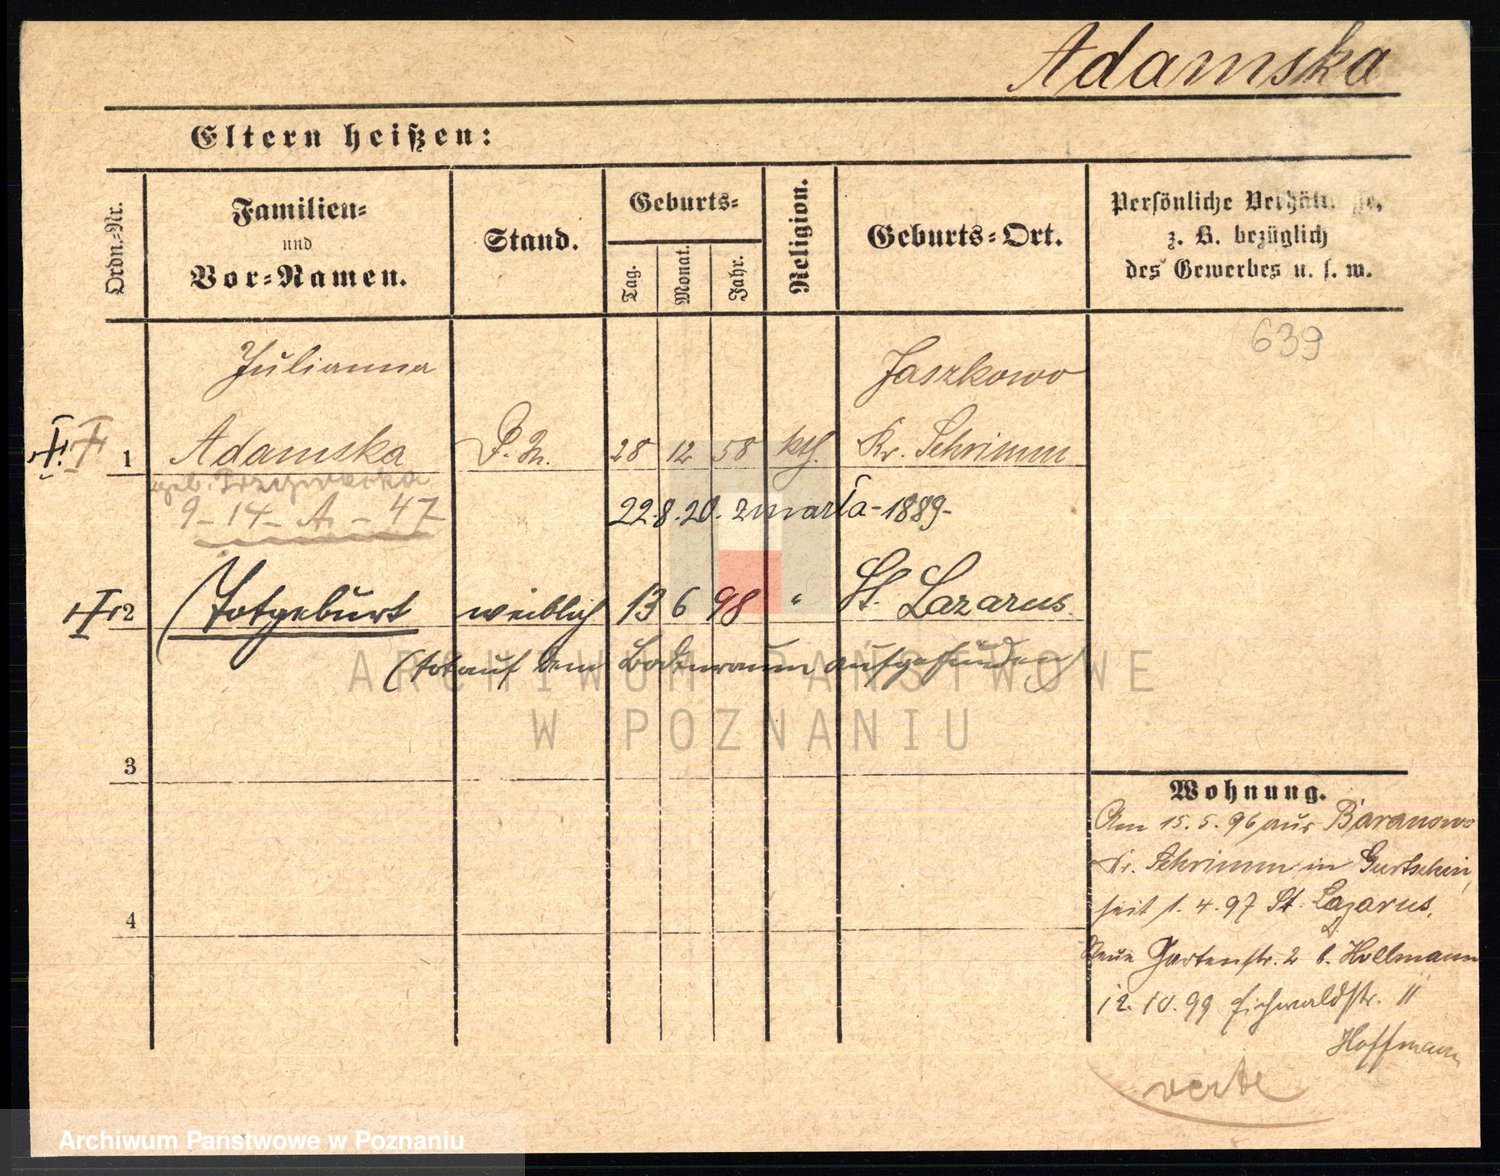 Adamska
Eltern heißen:
Ordn.-Nr.
Familien-
und
Vor-Namen.
Stand.
Geburts-
Tag.
Monat.
Jahr.
Religion.
Geburts-Ort.
Persönliche Verhältnisse,
z. B. bezüglich
des Gewerbes u. s. w.
639
Julianna Jaszkowo
1 Adamska 28 12 58 kth. Kr. Schrimm
geb.
9-14-A.-47
22.8.20. zmarła-1889-
2 Totgeburt weiblich 13 6 98 " St. Lazarus.
(tot auf dem Bodenraum aufgefunden)
ARCHIWUM PAŃSTWOWE
W POZNANIU
3
4
Wohnung.
Am 15.5.96 aus Baranowo
Kr. Schrimm in Gurtschin,
seit 1.4.97 St. Lazarus,
Neue Gartenstr. 2 b. Hollmann
12.10.99 Eichwaldstr. 11
Hoffmann
verte
Archiwum Państwowe w Poznaniu